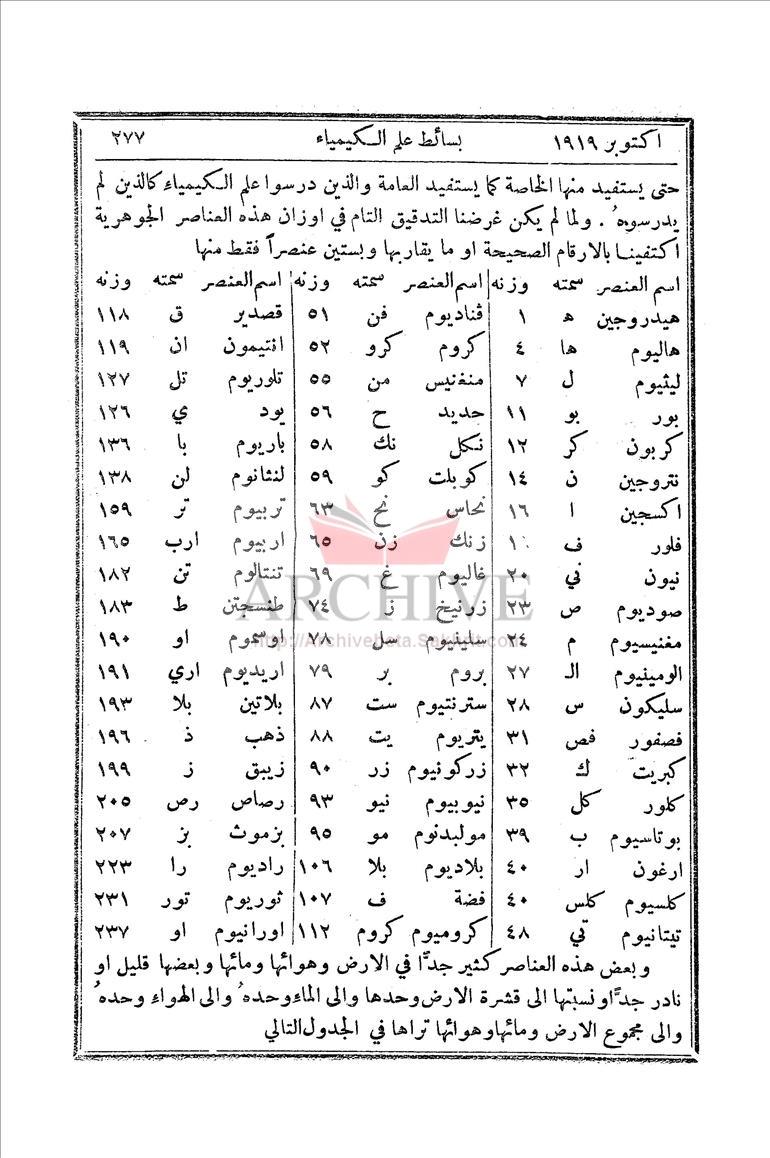 اكتوبر ١٩١٩ بسائط علم الكيمياء ٢٧٧
حتى يستفيد منها الخاصة كما يستفيد العامة والذين درسوا علم الكيمياء كالذين لم
يدرسوهُ . ولما لم يكن غرضنا التدقيق التام في اوزان هذه العناصر الجوهرية
اكتفينا بالارقام الصحيحة او ما يقاربها وبستين عنصراً فقط منها
اسم العنصر سمته وزنه اسم العنصر سمته وزنه اسم العنصر سمته وزنه
هيدروجين ه ١ ڤناديوم فن ٥١ قصدير ق ١١٨
هاليوم ها ٤ كروم كرو ٥٢ انتيمون ان ١١٩
ليثيوم ل ٧ منغنيس من ٥٥ تلوريوم تل ١٢٧
بور بو ١١ حديد ح ٥٦ يود ي ١٢٦
كربون كر ١٢ نكل نك ٥٨ باريوم با ١٣٦
نتروجين ن ١٤ كوبلت كو ٥٩ لنثانوم لن ١٣٨
اكسجين ا ١٦ نحاس نح ٦٣ تربيوم تر ١٥٩
فلور ف زنك زن ٦٥ اربيوم ارب ١٦٥
نيون ني ٢٠ غاليوم غ ٦٩ تنتالوم تن ١٨٢
صوديوم ص ٢٣ زرنيخ ز ٧٤ طنسجتن ط ١٨٣
مغنيسيوم م ٢٤ سلينيوم سل ٧٨ اوسموم او ١٩٠
الومينيوم ال ٢٧ بروم بر ٧٩ اريديوم اري ١٩١
سليكون س ٢٨ سترنتيوم ست ٨٧ بلاتين بلا ١٩٣
فصفور فص ٣١ يتريوم يت ٨٨ ذهب ذ ١٩٦
كبريت ك ٣٢ زركونيوم زر ٩٠ زيبق ز ١٩٩
كلور كل ٣٥ نيوبيوم نيو ٩٣ رصاص رص ٢٠٥
بوتاسيوم ب ٣٩ مولبدنوم مو ٩٥ بزموث بز ٢٠٧
ارغون ار ٤٠ بلاديوم بلا ١٠٦ راديوم را ٢٢٣
كلسيوم كلس ٤٠ فضة ف ١٠٧ ثوريوم تور ٢٣١
تيتانيوم تي ٤٨ كروميوم كروم ١١٢ اورانيوم او ٢٣٧
وبعض هذه العناصر كثير جدًّا في الارض وهوائها ومائها وبعضها قليل او
نادر جدًّا ونسبتها الى قشرة الارض وحدها والى الماء وحدهُ والى الهواء وحدهُ
والى مجموع الارض ومائها وهوائها تراها في الجدول التالي
ARCHIVE
http://Archivebeta.Sakhrit.com